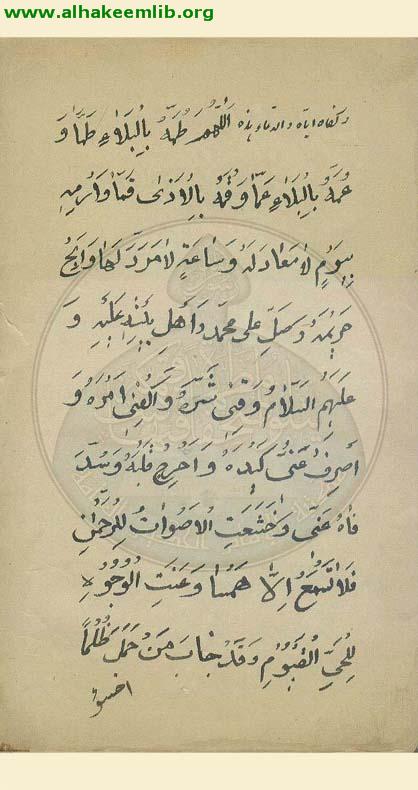 www.alhakeemlib.org
وكفاه اياه والدعاء هذه اَللّٰهُمَّ طُمَّهُ بِالْبَلَاءِ طَمّاً وَ
عُمَّهُ بِالْبَلَاءِ عَمّاً وَقُمَّهُ بِالْاَذٰى قَمّاً وَارْمِهِ
بِيَوْمٍ لَا مَعَادَ لَهُ وَسَاعَةٍ لَا مَرَدَّ لَهَا وَابِحْ
حَرِيمَهُ وَصَلِّ عَلٰى مُحَمَّدٍ وَاَهْلِ بَيْتِهِ عَلَيْهِ وَ
عَلَيْهِمُ السَّلَامُ وَقِنِي شَرَّهُ وَاكْفِنِي اَمْرَهُ وَ
اصْرِفْ عَنِّي كَيْدَهُ وَاَحْرِجْ قَلْبَهُ وَسُدَّ
فَاهُ عَنِّي وَخَشَعَتِ الْاَصْوَاتُ لِلرَّحْمٰنِ
فَلَا تَسْمَعُ اِلَّا هَمْساً وَعَنَتِ الْوُجُوهُ
لِلْحَيِّ الْقَيُّومِ وَقَدْ خَابَ مَنْ حَمَلَ ظُلْماً
اخسؤ